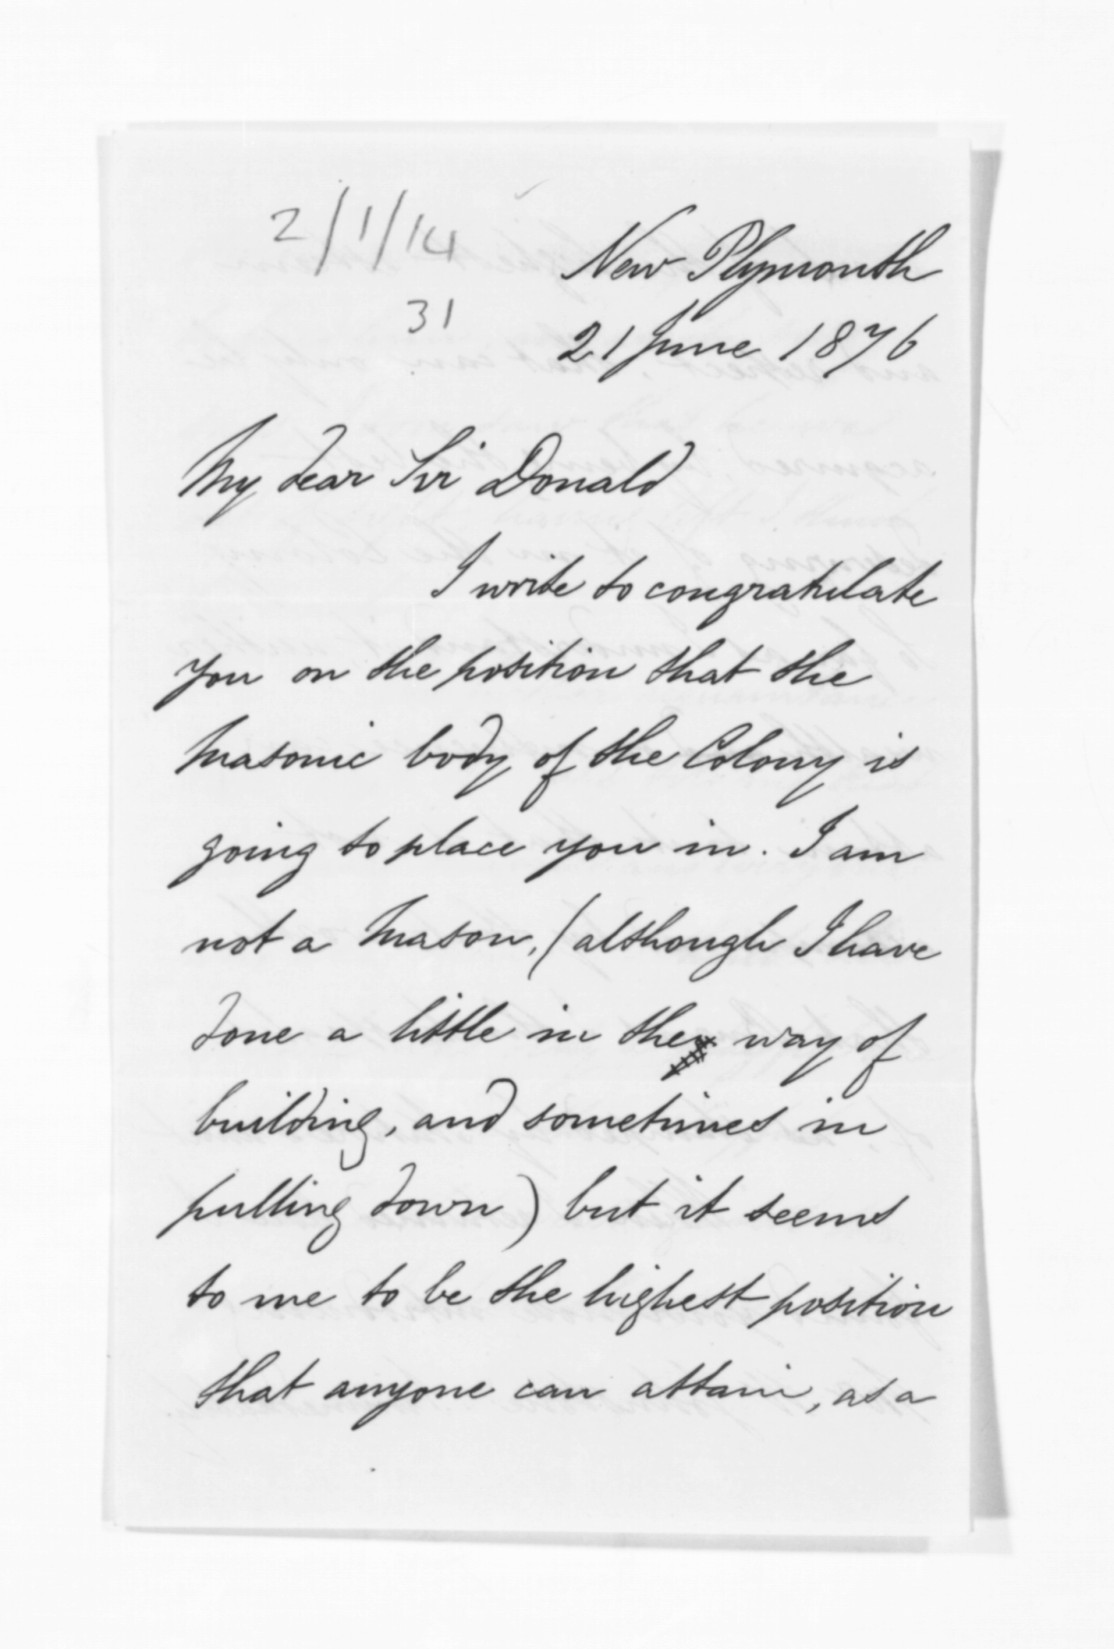 2/1/14
31
New Plymouth
21 June 1876
My dear Sir Donald
I write to congratulate
you on the position that the
Masonic body of the Colony is
going to place you in. I am
not a Mason, (although I have
done a little in the way of
building, and sometimes in
pulling down) but it seems
to me to be the highest position
that anyone can attain, as a